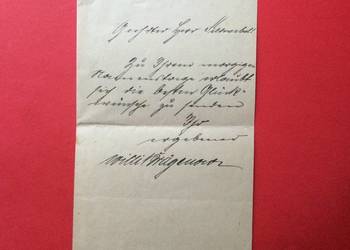 Geehrter Herr
Zu Ihrem morgigen
Namenstage erlaubt
sich die besten Glück-
wünsche zu senden
Ihr
ergebener
Willi